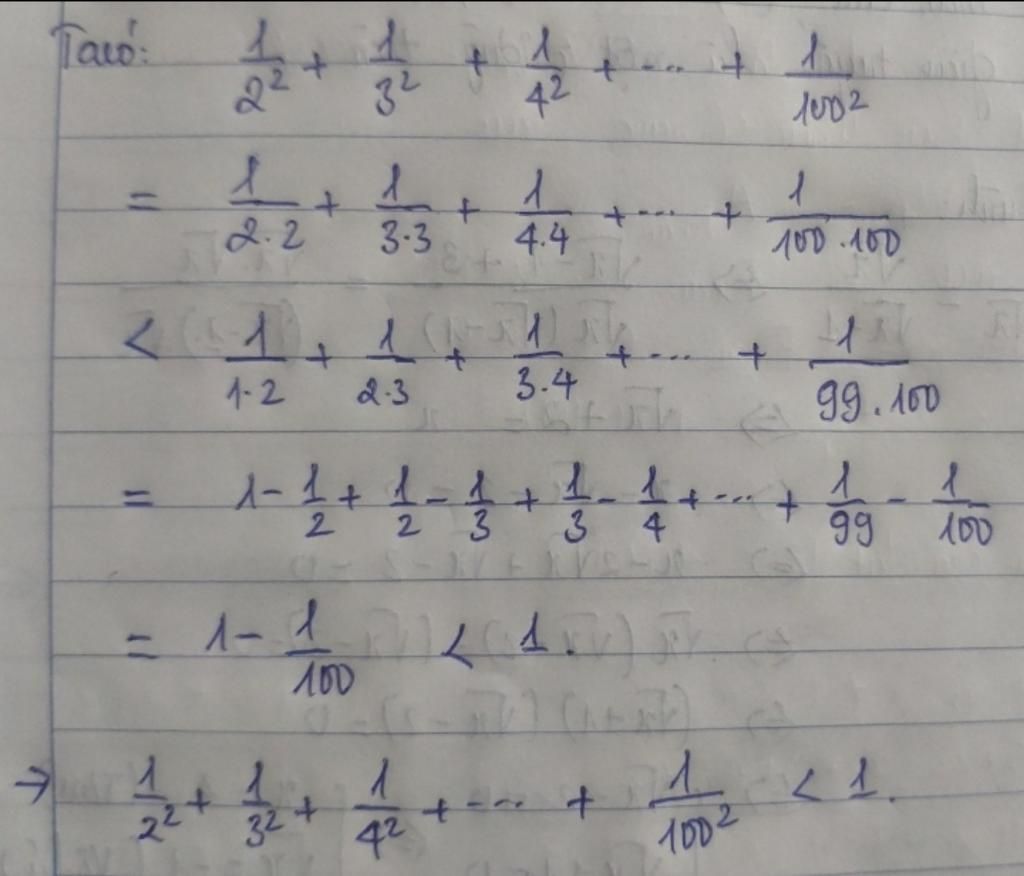 Ta có: 1/2² + 1/3² + 1/4² + ... + 1/100²
= 1/2.2 + 1/3.3 + 1/4.4 + ... + 1/100.100
< 1/1.2 + 1/2.3 + 1/3.4 + ... + 1/99.100
= 1 - 1/2 + 1/2 - 1/3 + 1/3 - 1/4 + ... + 1/99 - 1/100
= 1 - 1/100 < 1.
→ 1/2² + 1/3² + 1/4² + ... + 1/100² < 1.